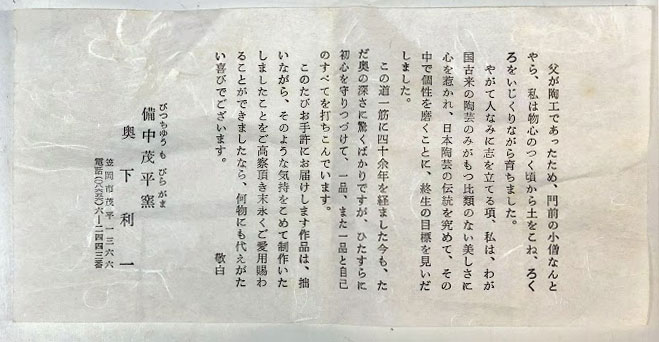 父が陶工であったため、門前の小僧なんと
やら、私は物心のつく頃から土をこね、ろく
ろをいじくりながら育ちました。
やがて人なみに志を立てる項、私は、わが
国古来の陶芸のみがもつ比類のない美しさに
心を惹かれ、日本陶芸の伝統を究めて、その
中で個性を磨くことに、終生の目標を見いだ
しました。
この道一筋に四十余年を経ました今も、た
だ奥の深さに驚くばかりですが、ひたすらに
初心を守りつづけて、一品、また一品と自己
のすべてを打ちこんでいます。
このたびお手許にお届けします作品は、拙
いながら、そのような気持をこめて制作いた
しましたことをご高察頂き末永くご愛用賜わ
ることができましたなら、何物にも代えがた
い喜びでございます。
敬白
びっちゅう も びらがま
備中茂平窯
奥下利一
笠岡市茂平一三六六
電話(〇八六五六)六ー二四四三番